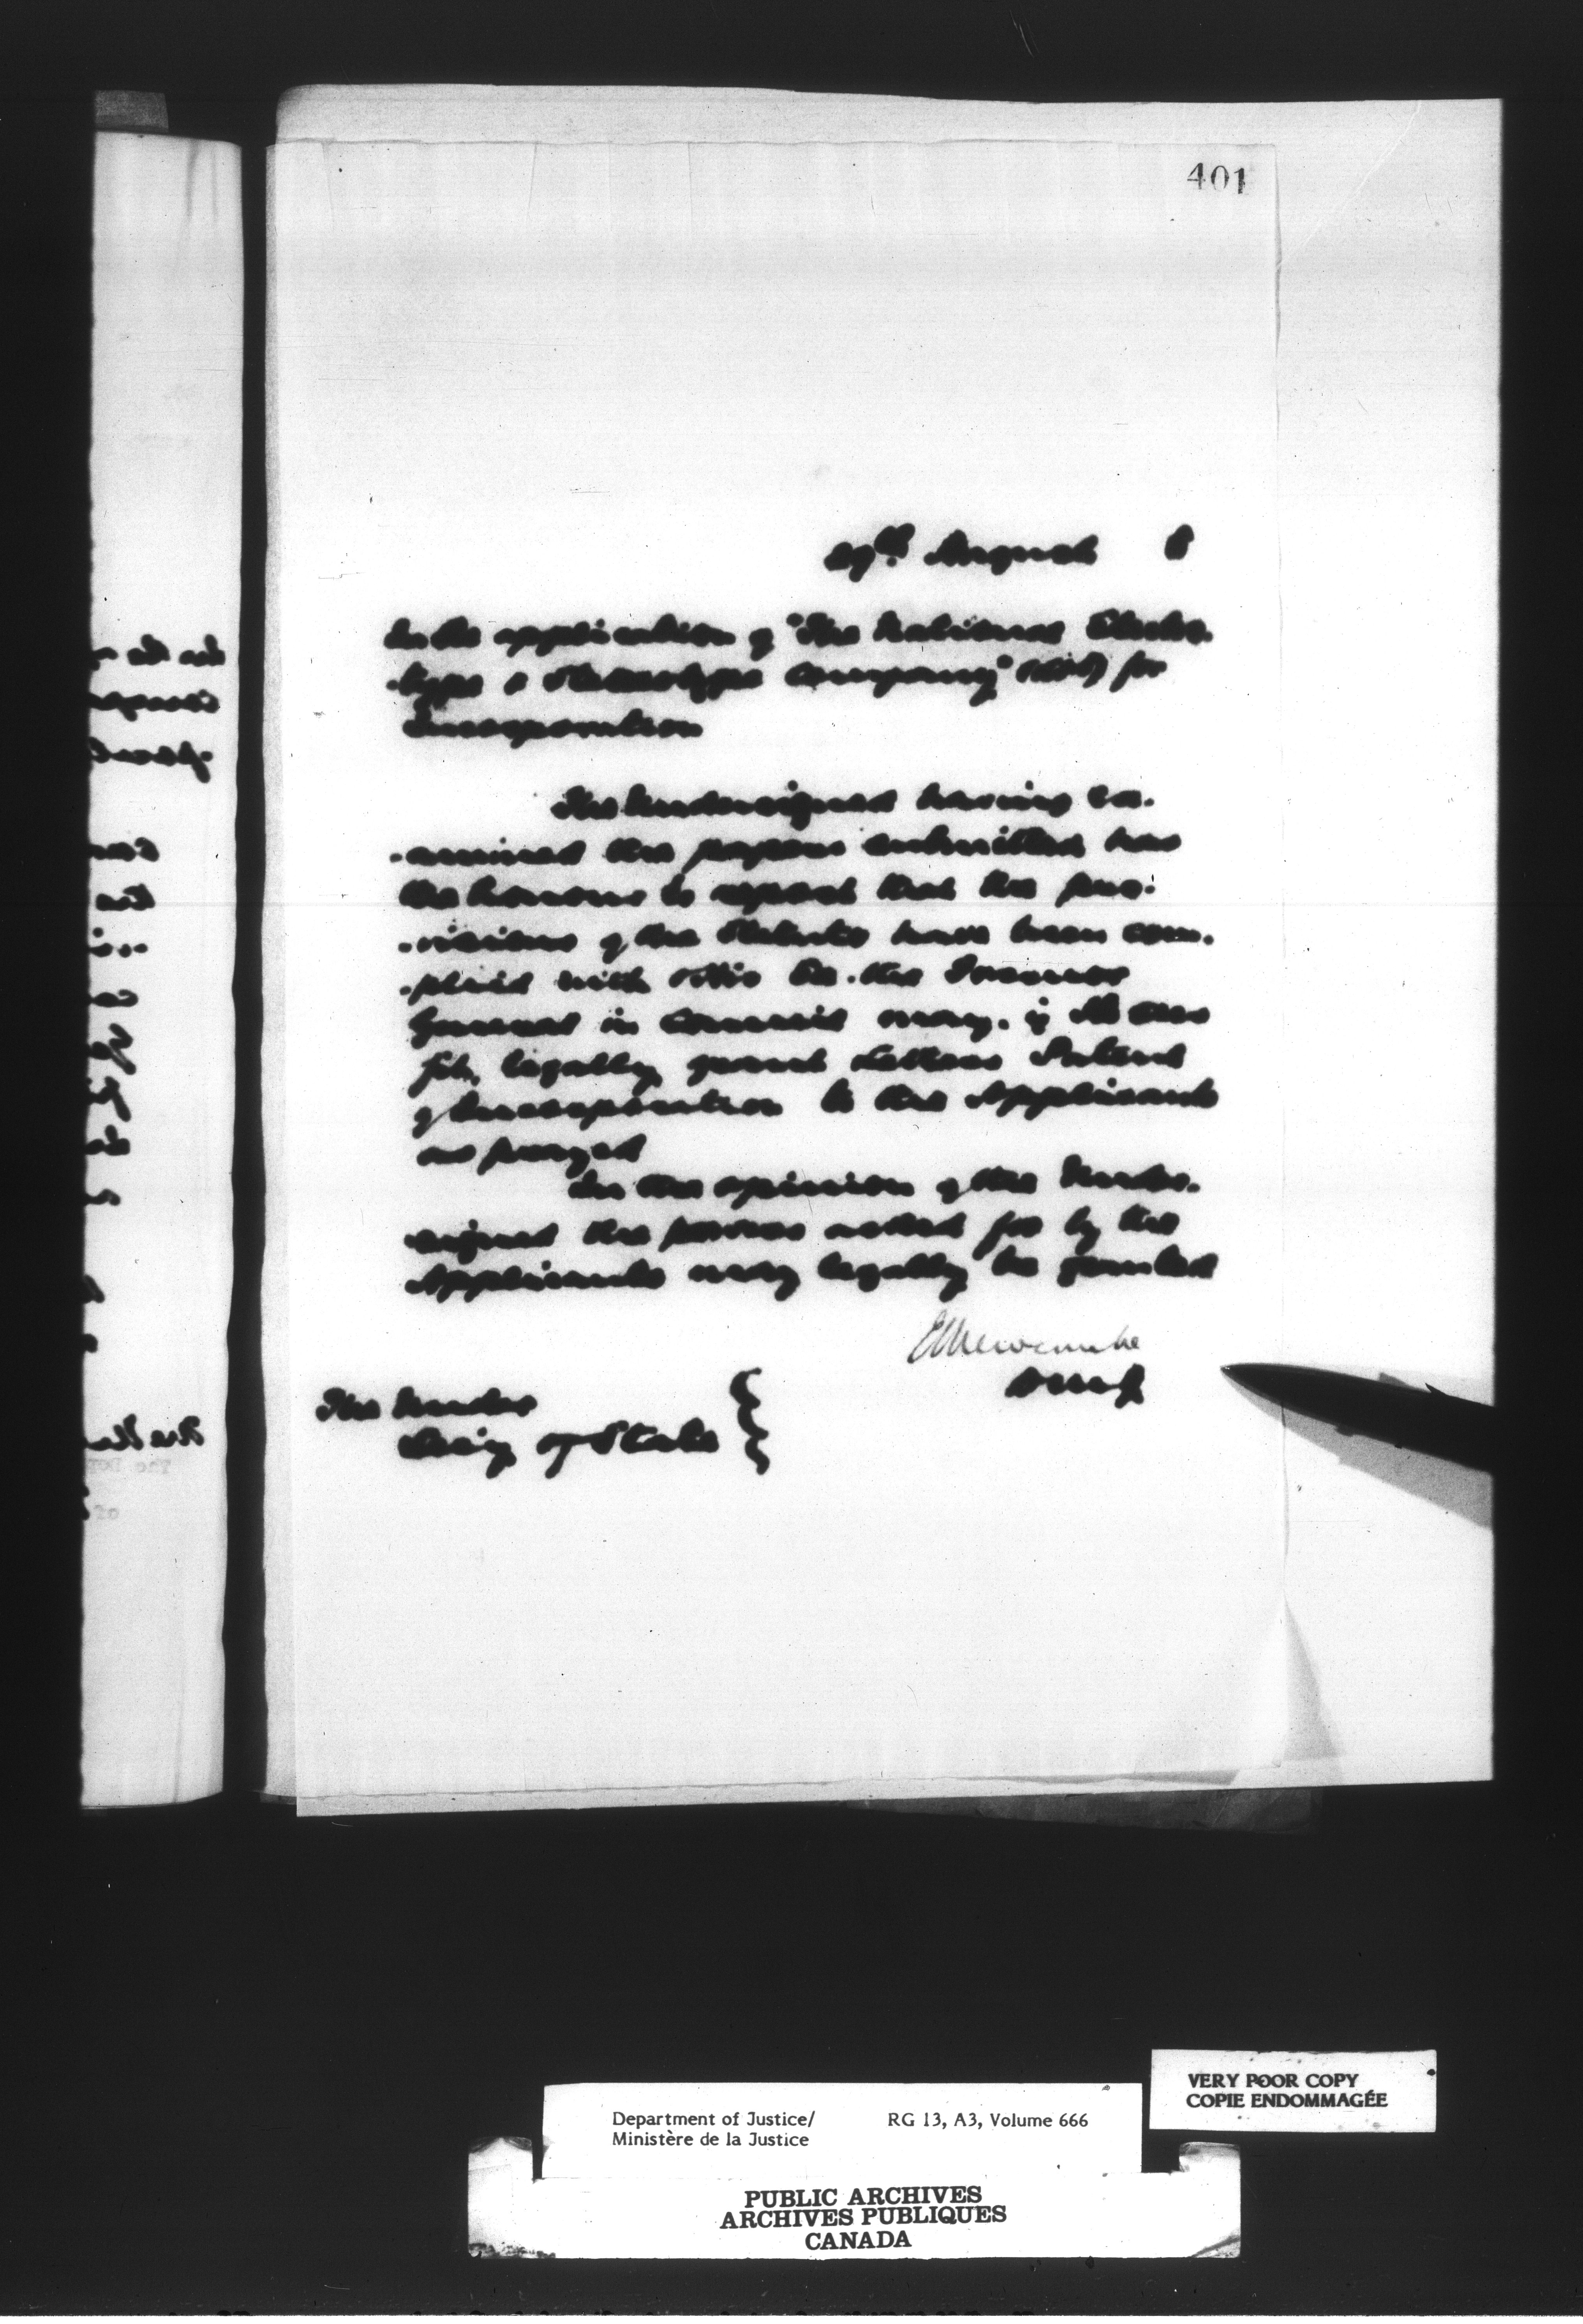 401
29th August 8
In the application of "The National Electro-
-type & Stereotype Company" (Ltd) for
Incorporation
The Undersigned having ex-
-amined the papers submitted has
the honour to report that the pro-
-visions of the Statute have been com-
-plied with & His Ex. the Governor
General in Council may, if He sees
fit, legally grant Letters Patent
of Incorporation to the Applicants
as prayed
In the opinion of the Under-
signed the powers asked for by the
Applicants may legally be granted
E L Newcombe
D.M.J.
The Under
Sec'y of State
VERY POOR COPY
COPIE ENDOMMAGÉE
Department of Justice/ RG 13, A3, Volume 666
Ministère de la Justice
PUBLIC ARCHIVES
ARCHIVES PUBLIQUES
CANADA